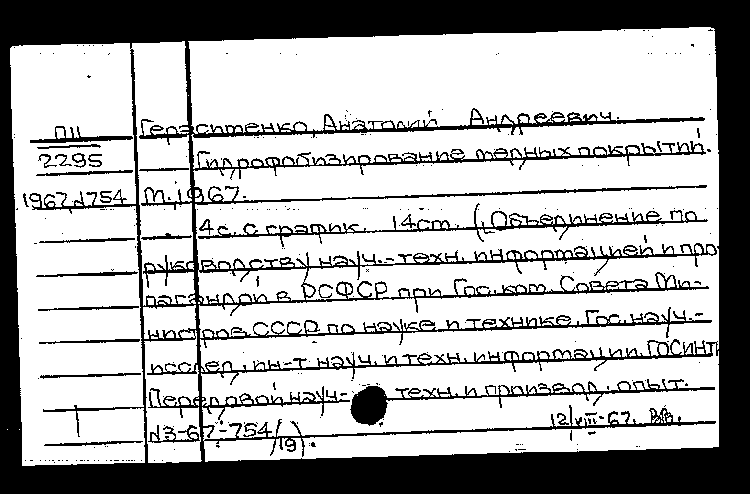 П11 Герасименко, Анатолий Андреевич.
2295 Гидрофобизирование медных покрытий.
1967,№754 М., 1967.
4с. с график. 14см. (Объединение по
руководству науч.-техн. информацией и про-
пагандой в РСФСР при Гос. ком. Совета Ми-
нистров СССР по науке и технике. Гос. науч.-
исслед. ин-т науч. и техн. информации. ГОСИНТИ
Передовой науч.- техн. и производ. опыт.
1 №3-67-754/19).
12/VIII-67.